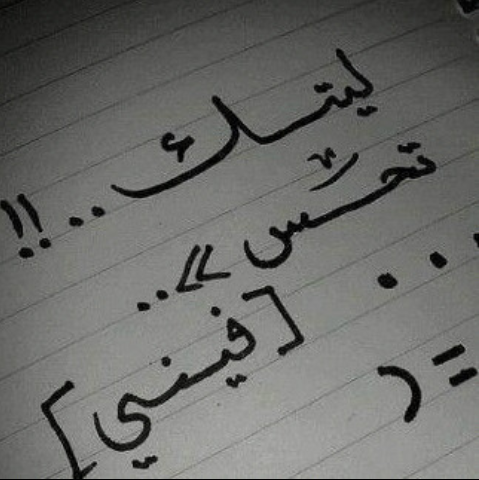 ليتك ..!!
تحس >> ..
...
[فيني]
=(